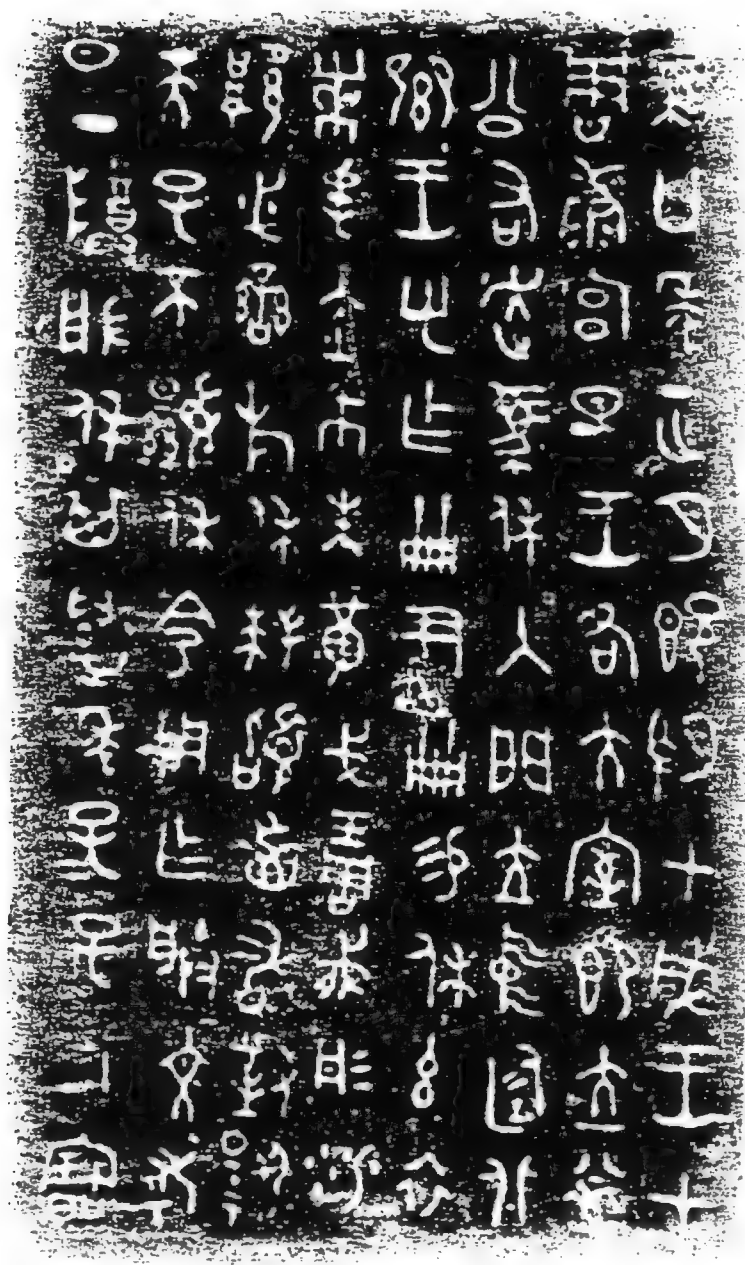 隹廿年正月既望甲戌王才
周康宮旦王各大室即立益
公右走馬休入門立中廷北
鄉王乎乍冊尹冊易休玄衣
黹屯赤市朱黃戈琱胾彤沙
厚必䜌㫃休拜稽首敢對揚
天子不顯休令用乍朕文考
日丁尊般休其萬年子孫永寶